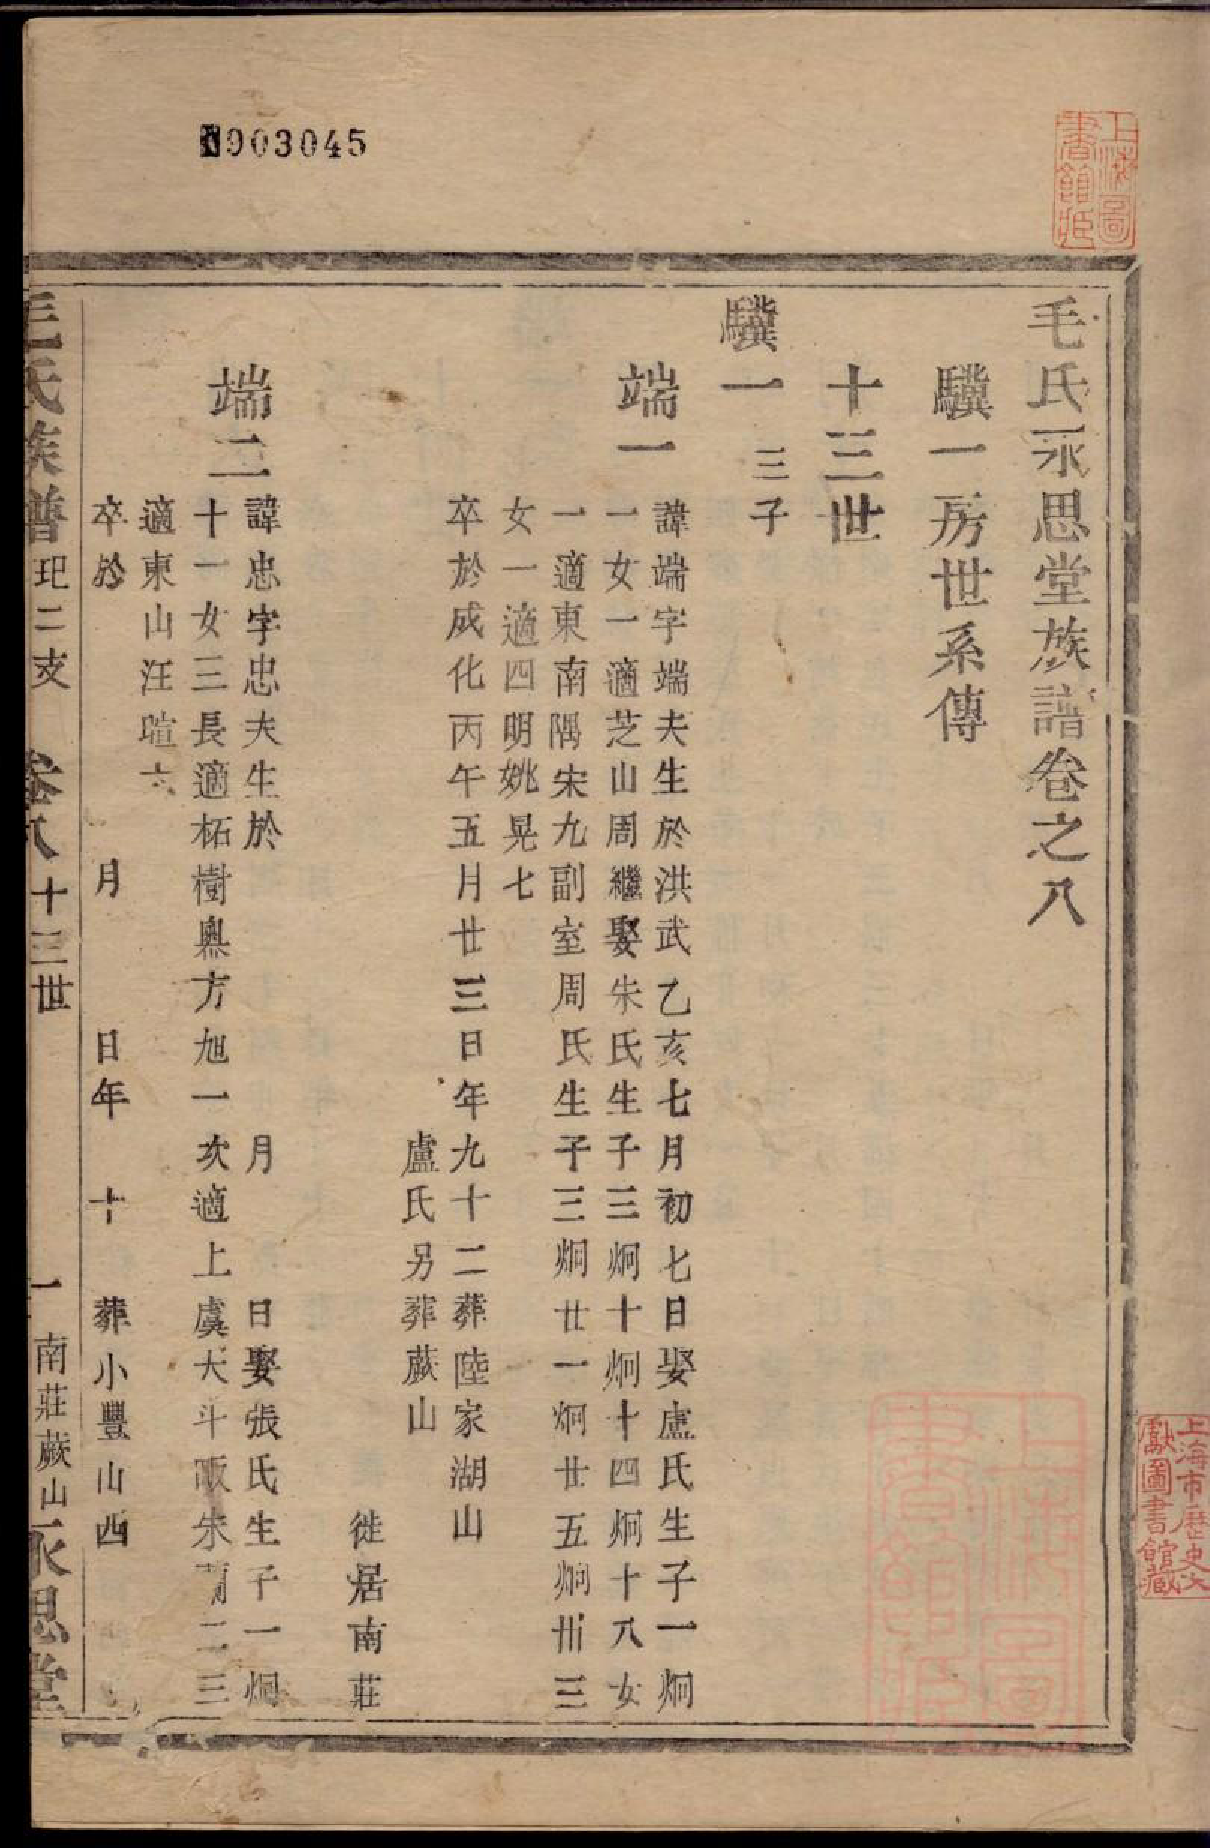 903045
上海圖書館藏
毛氏永思堂族譜卷之八
驥一房世系傳
十三世
驥一 三子
端一 諱端字端夫生於洪武乙亥七月初七日娶盧氏生子一炯
一女一適芝山周繼娶朱氏生子三炯十炯十四炯十八女
一適東南隅宋九副室周氏生子三炯廿一炯廿五炯卅三
女一適四明姚晃七
卒於成化丙午五月廿三日年九十二葬陸家湖山
盧氏另葬蕨山
徙居南莊
端二 諱忠字忠夫生於 月 日娶張氏生子一炯
十一女三長適柘樹奧方旭一次適上虞大斗畈朱蘭二三
適東山汪暄六
卒於 月 日年 十 葬小豐山西
毛氏族譜 玘二支 卷八 十三世 一 南莊蕨山 永思堂
上海圖書館藏
上海市歷史文獻圖書館藏